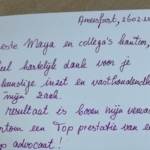 Amersfoort, 26.02.20
este Maya en collega's kantoor,
eel hartelijk dank voor je
kundige inzet en vasthoudend
mijn zaak.
resultaat is boven mijn verwa
rtom een Top prestatie van e
op advocaat!